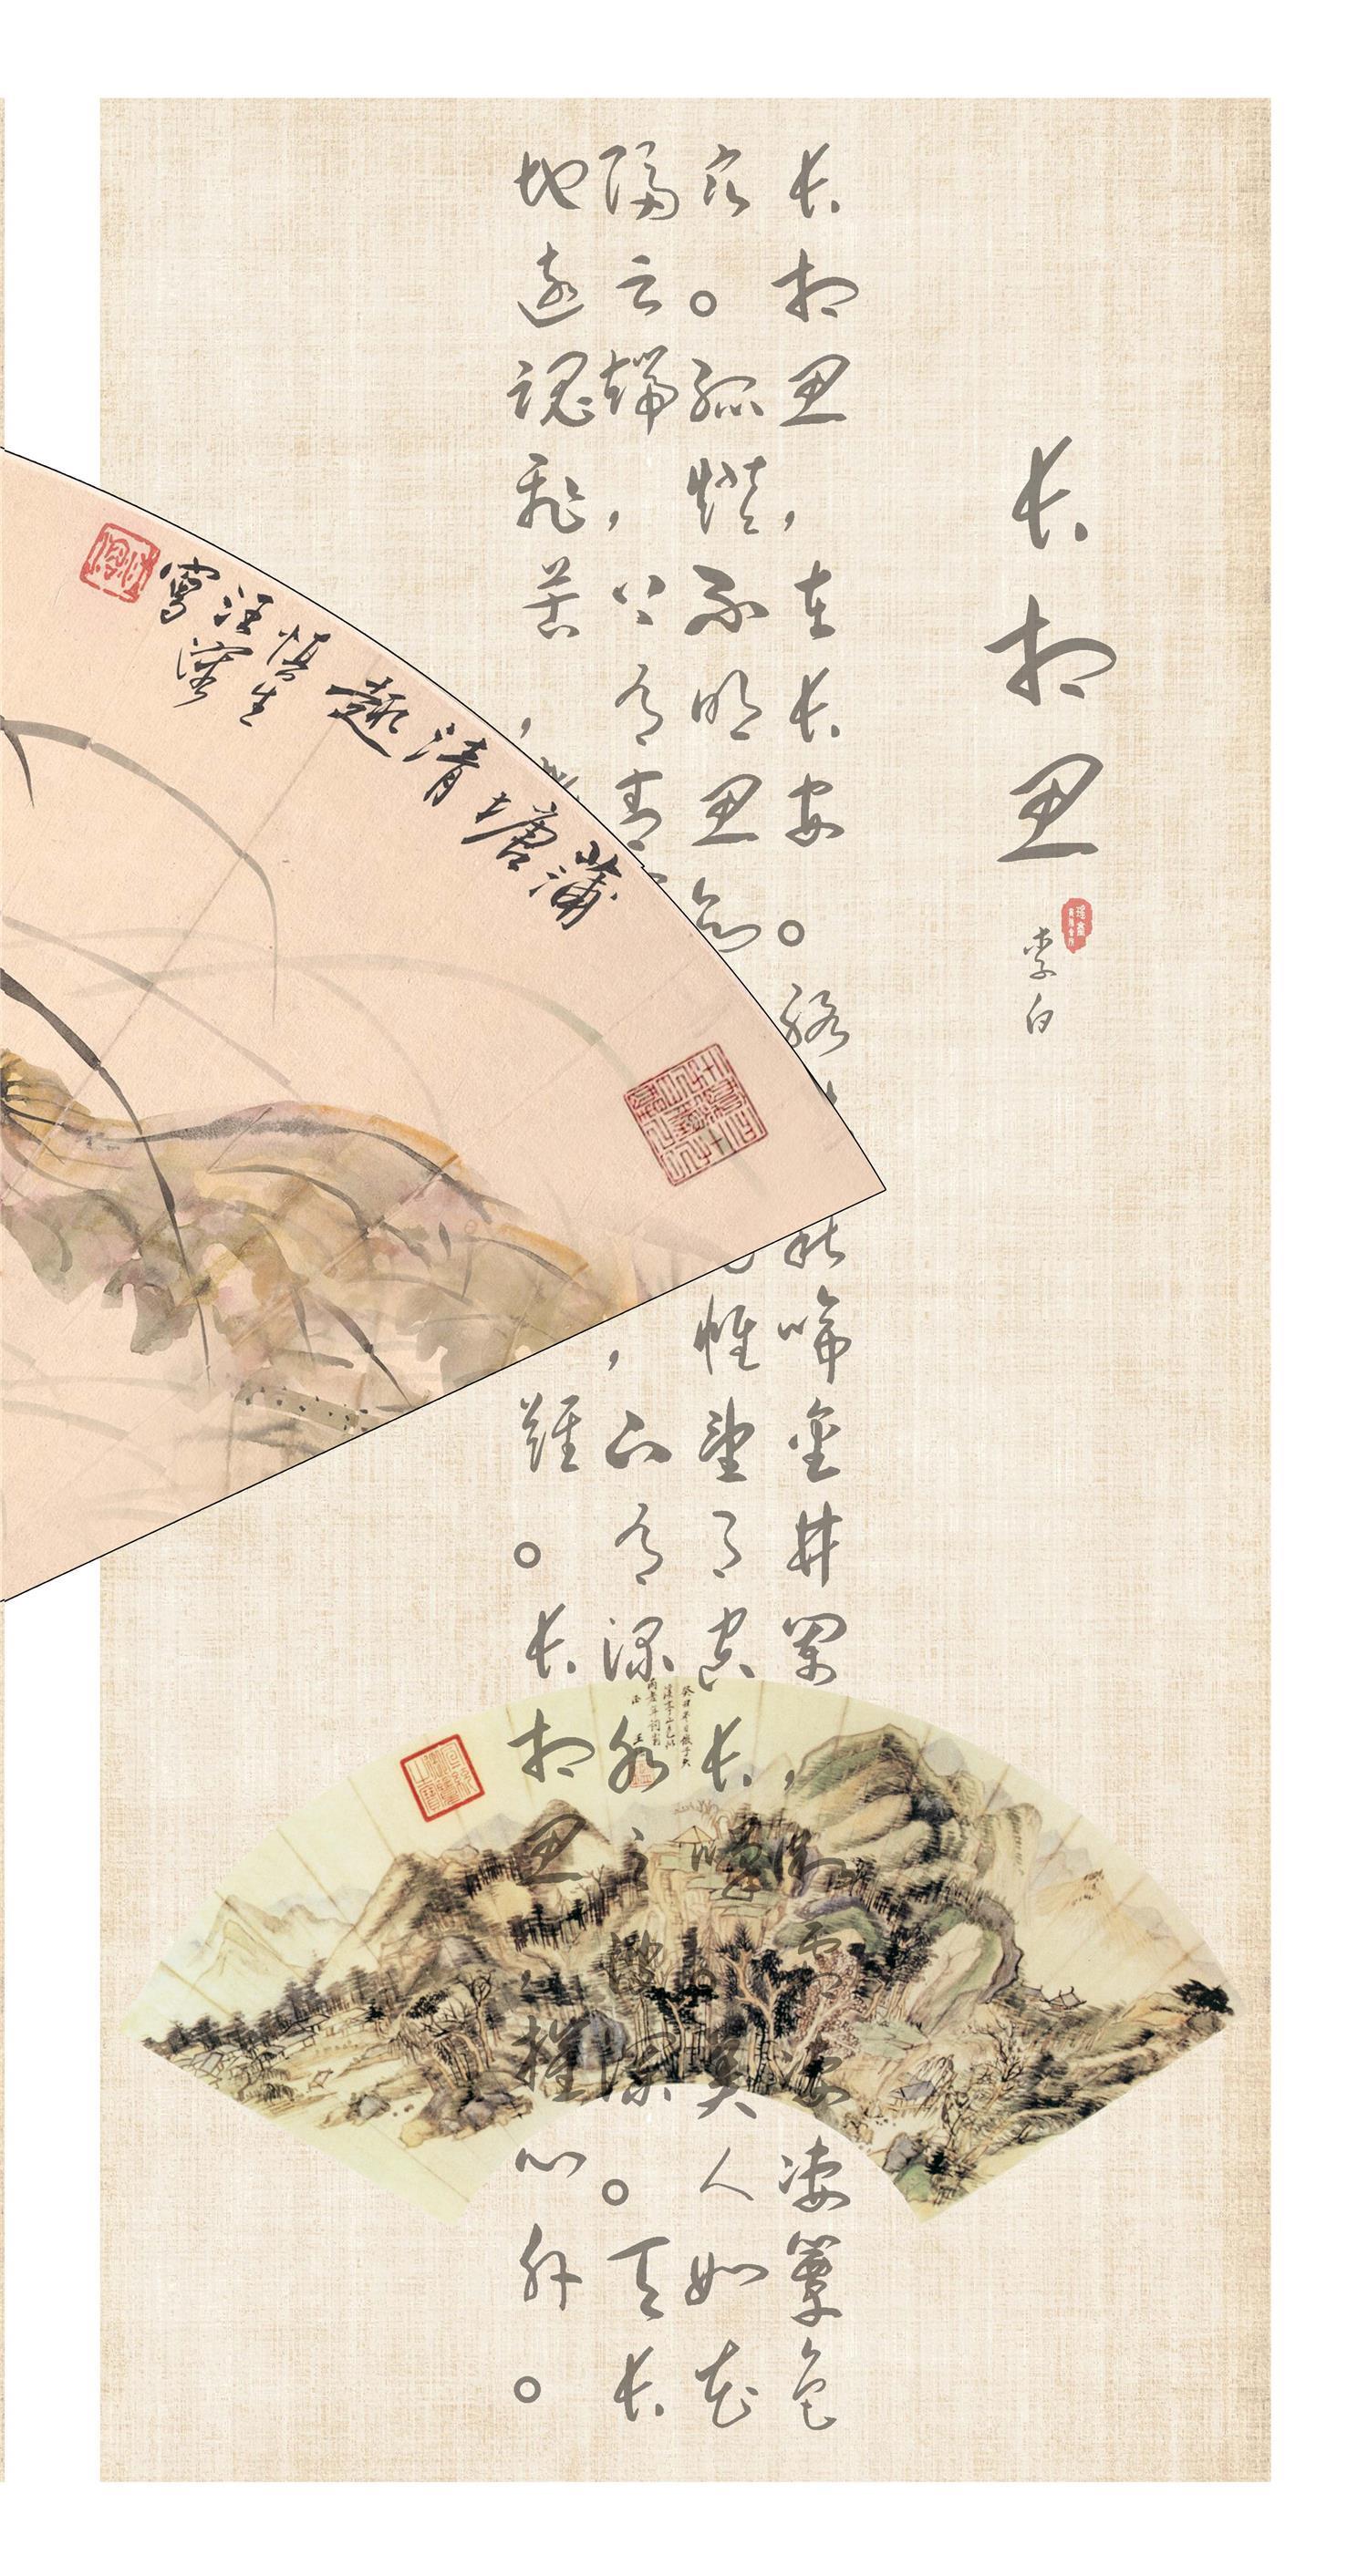 长相思
李白
长相思，在长安。络秋啼金井阑，微霜凄凄簟色
寒。孤灯不明思欲帷望月空长叹。美人如花
隔云端，上有青，下有渌水之波澜。天长
地远魂飞苦，难。长相思，摧心肝。
蒲塘清趣
慎生
汪溶
寫